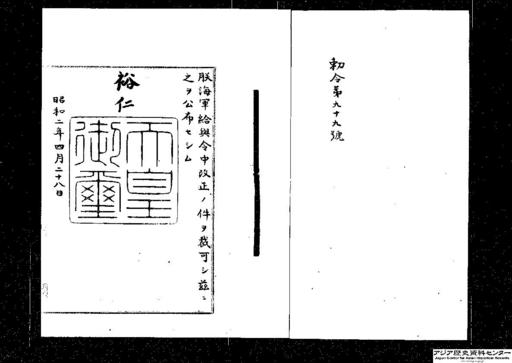 勅令第九十九號
朕海軍給與令中改正ノ件ヲ裁可シ茲ニ
之ヲ公布セシム
裕仁
天皇
御璽
昭和二年四月二十八日
アジア歴史資料センター
Japan Center for Asian Historical Records